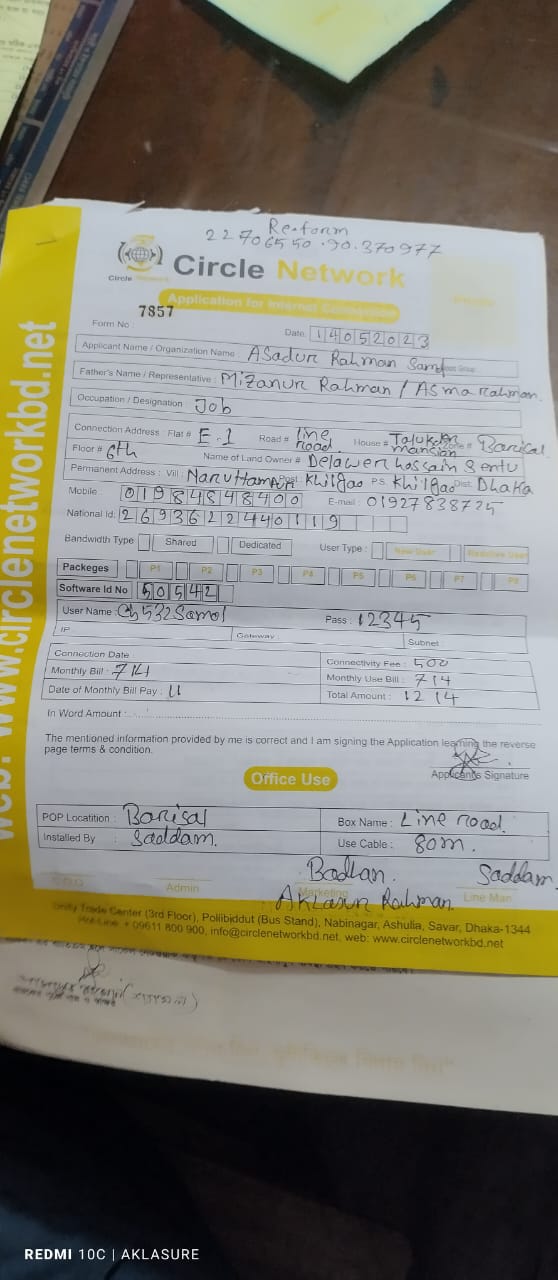 Re-form
22706550.90.370977
Circle Network
Application for Internet Connection
Form No : 7857
Date 14052023
Applicant Name / Organization Name : ASadur Rahman
Father's Name / Representative : Mizanur Rahman / Asma Rahman.
Occupation / Designation : Job
Connection Address : Flat # E-1 Road # line road. House # Talukder mansion Zone # Barisal
Floor # 6th Name of Land Owner # Delawer hossain Sentu
Permanent Address : Vill Post Khilgao P.S. Khilgao Dist. Dhaka
Mobile 01984848400 E-mail : 01927838725
National Id: 2693622440119
Bandwidth Type Shared Dedicated User Type : New User Reactive User
Packeges P1 P2 P3 P4 P5 P6 P7 P8
Software Id No 50542
User Name : Pass : 12345
IP Gateway : Subnet
Connection Date : Connectivity Fee : 500
Monthly Bill : 714 Monthly Use Bill : 714
Date of Monthly Bill Pay : 11 Total Amount : 1214
In Word Amount :
The mentioned information provided by me is correct and I am signing the Application learning the reverse
page terms & condition.
Applicants Signature
Office Use
POP Locatition : Barisal Box Name : Line road.
Installed By : Saddam. Use Cable : 80m.
Saddam
Admin Marketing Line Man
Aklasur Rahman
Unity Trade Center (3rd Floor), Pollibiddut (Bus Stand), Nabinagar, Ashulia, Savar, Dhaka-1344
Hot-Line + 09611 800 900, info@circlenetworkbd.net, web: www.circlenetworkbd.net
web: www.circlenetworkbd.net
REDMI 10C | AKLASURE